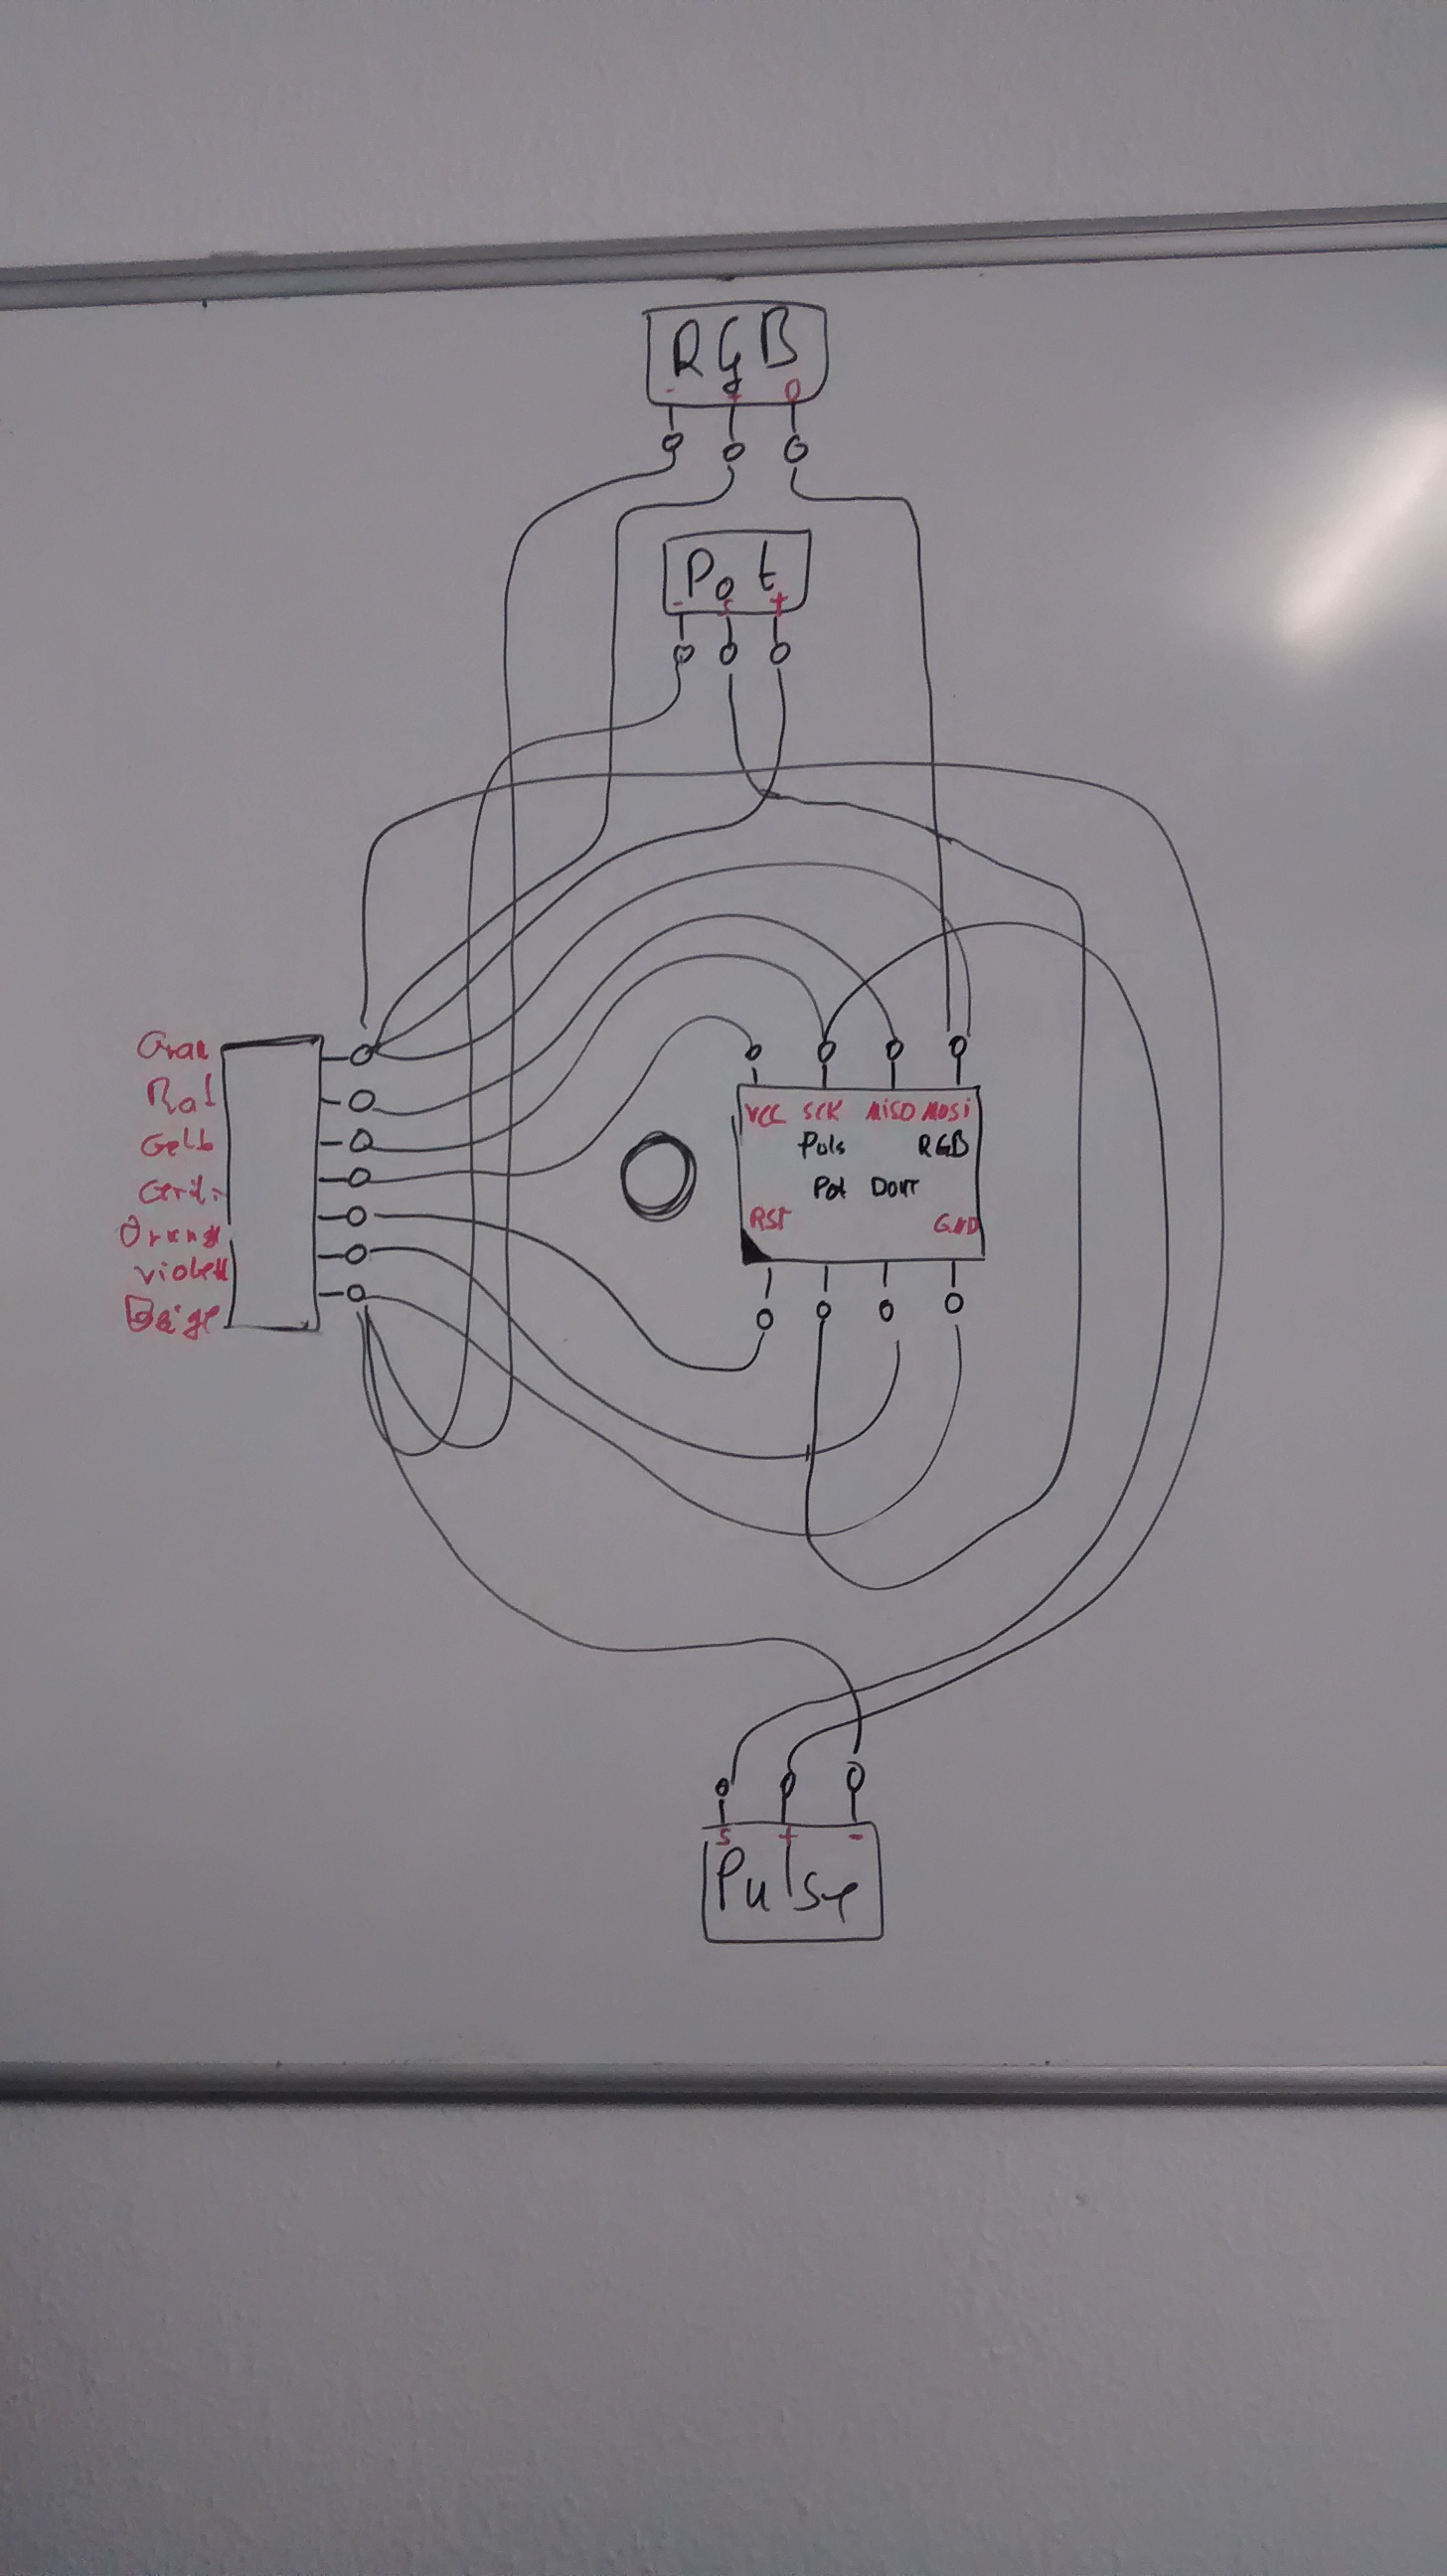 RGB
- + D
Pot
- s +
Grau
Rot
Gelb
Orange
violett
Beige
VCC SCK MISO MOSI
Puls RGB
Pot
RST GND
s + -
Pulse